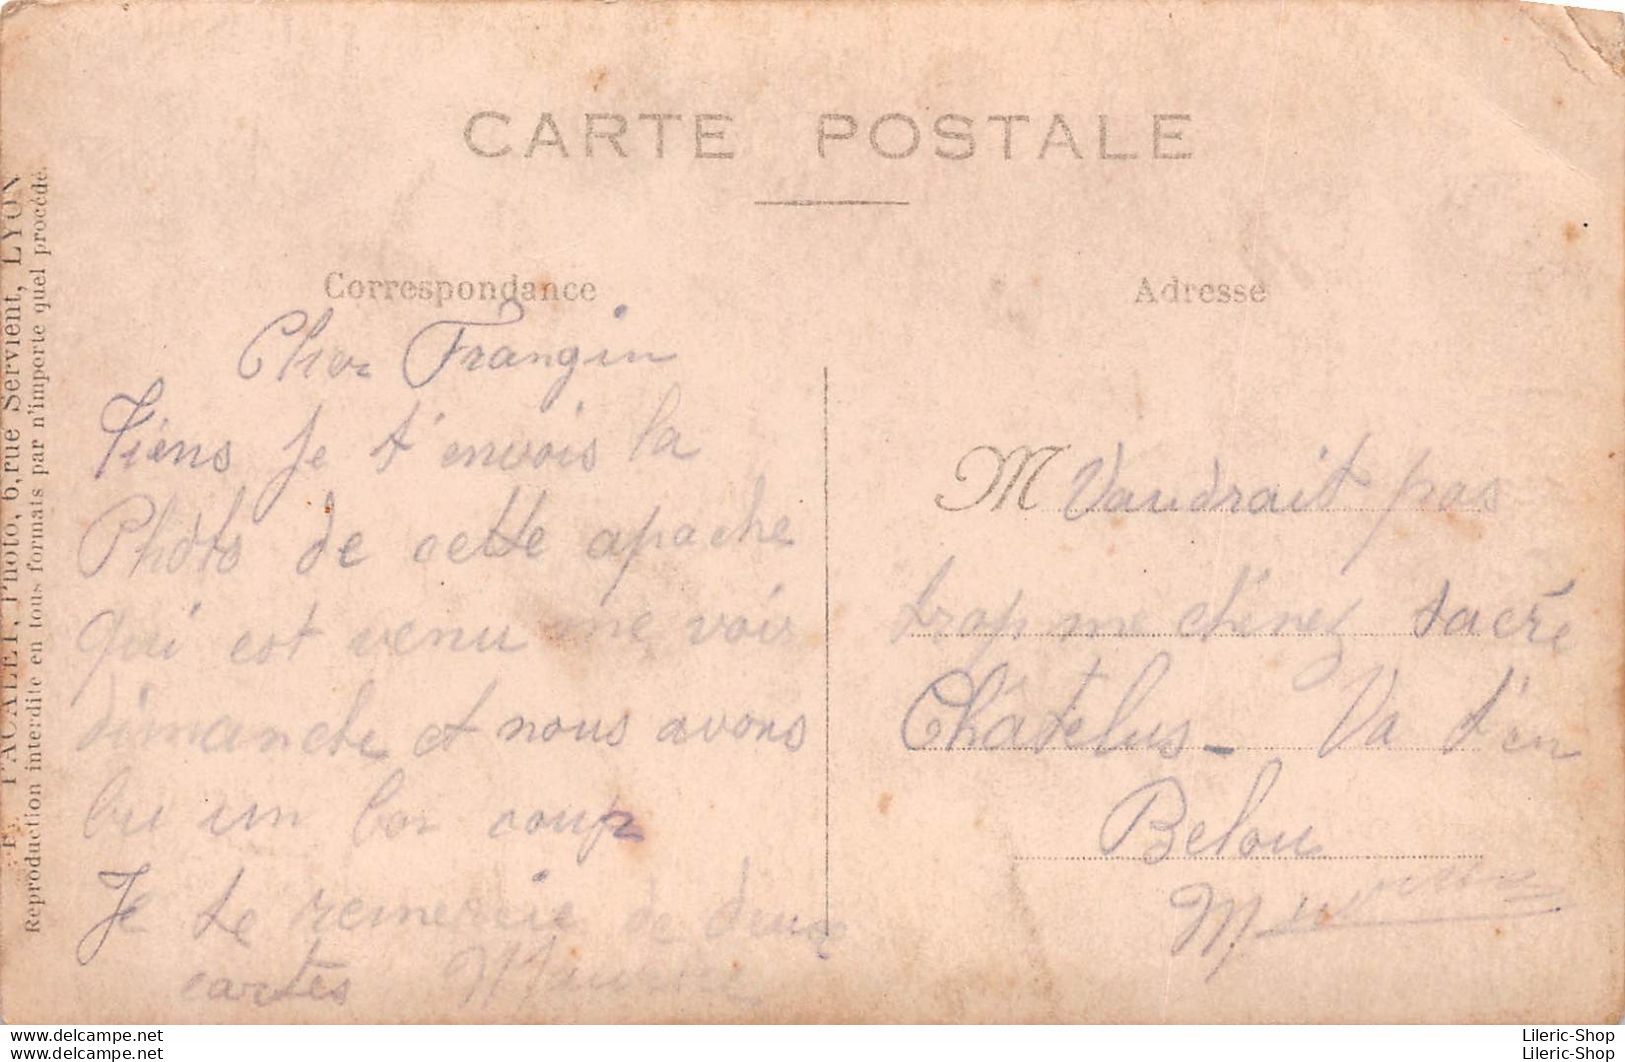 CARTE POSTALE
Correspondance
Adresse
Cher Frangin
Tiens je t'envois la
Photo de cette apache
qui est venu me voir
dimanche et nous avons
bu un bon coup
Je te remercie de deux
cartes Maurice
M Vaudrait pas
trop me chinez sacré
Châtelus - Va t'en
Belou
PACALET, Photo, 6, rue Servient, LYON
Reproduction interdite en tous formats par n'importe quel procédé.
Lileric-Shop
Lileric-Shop
https://www.delcampe.net
https://www.delcampe.net